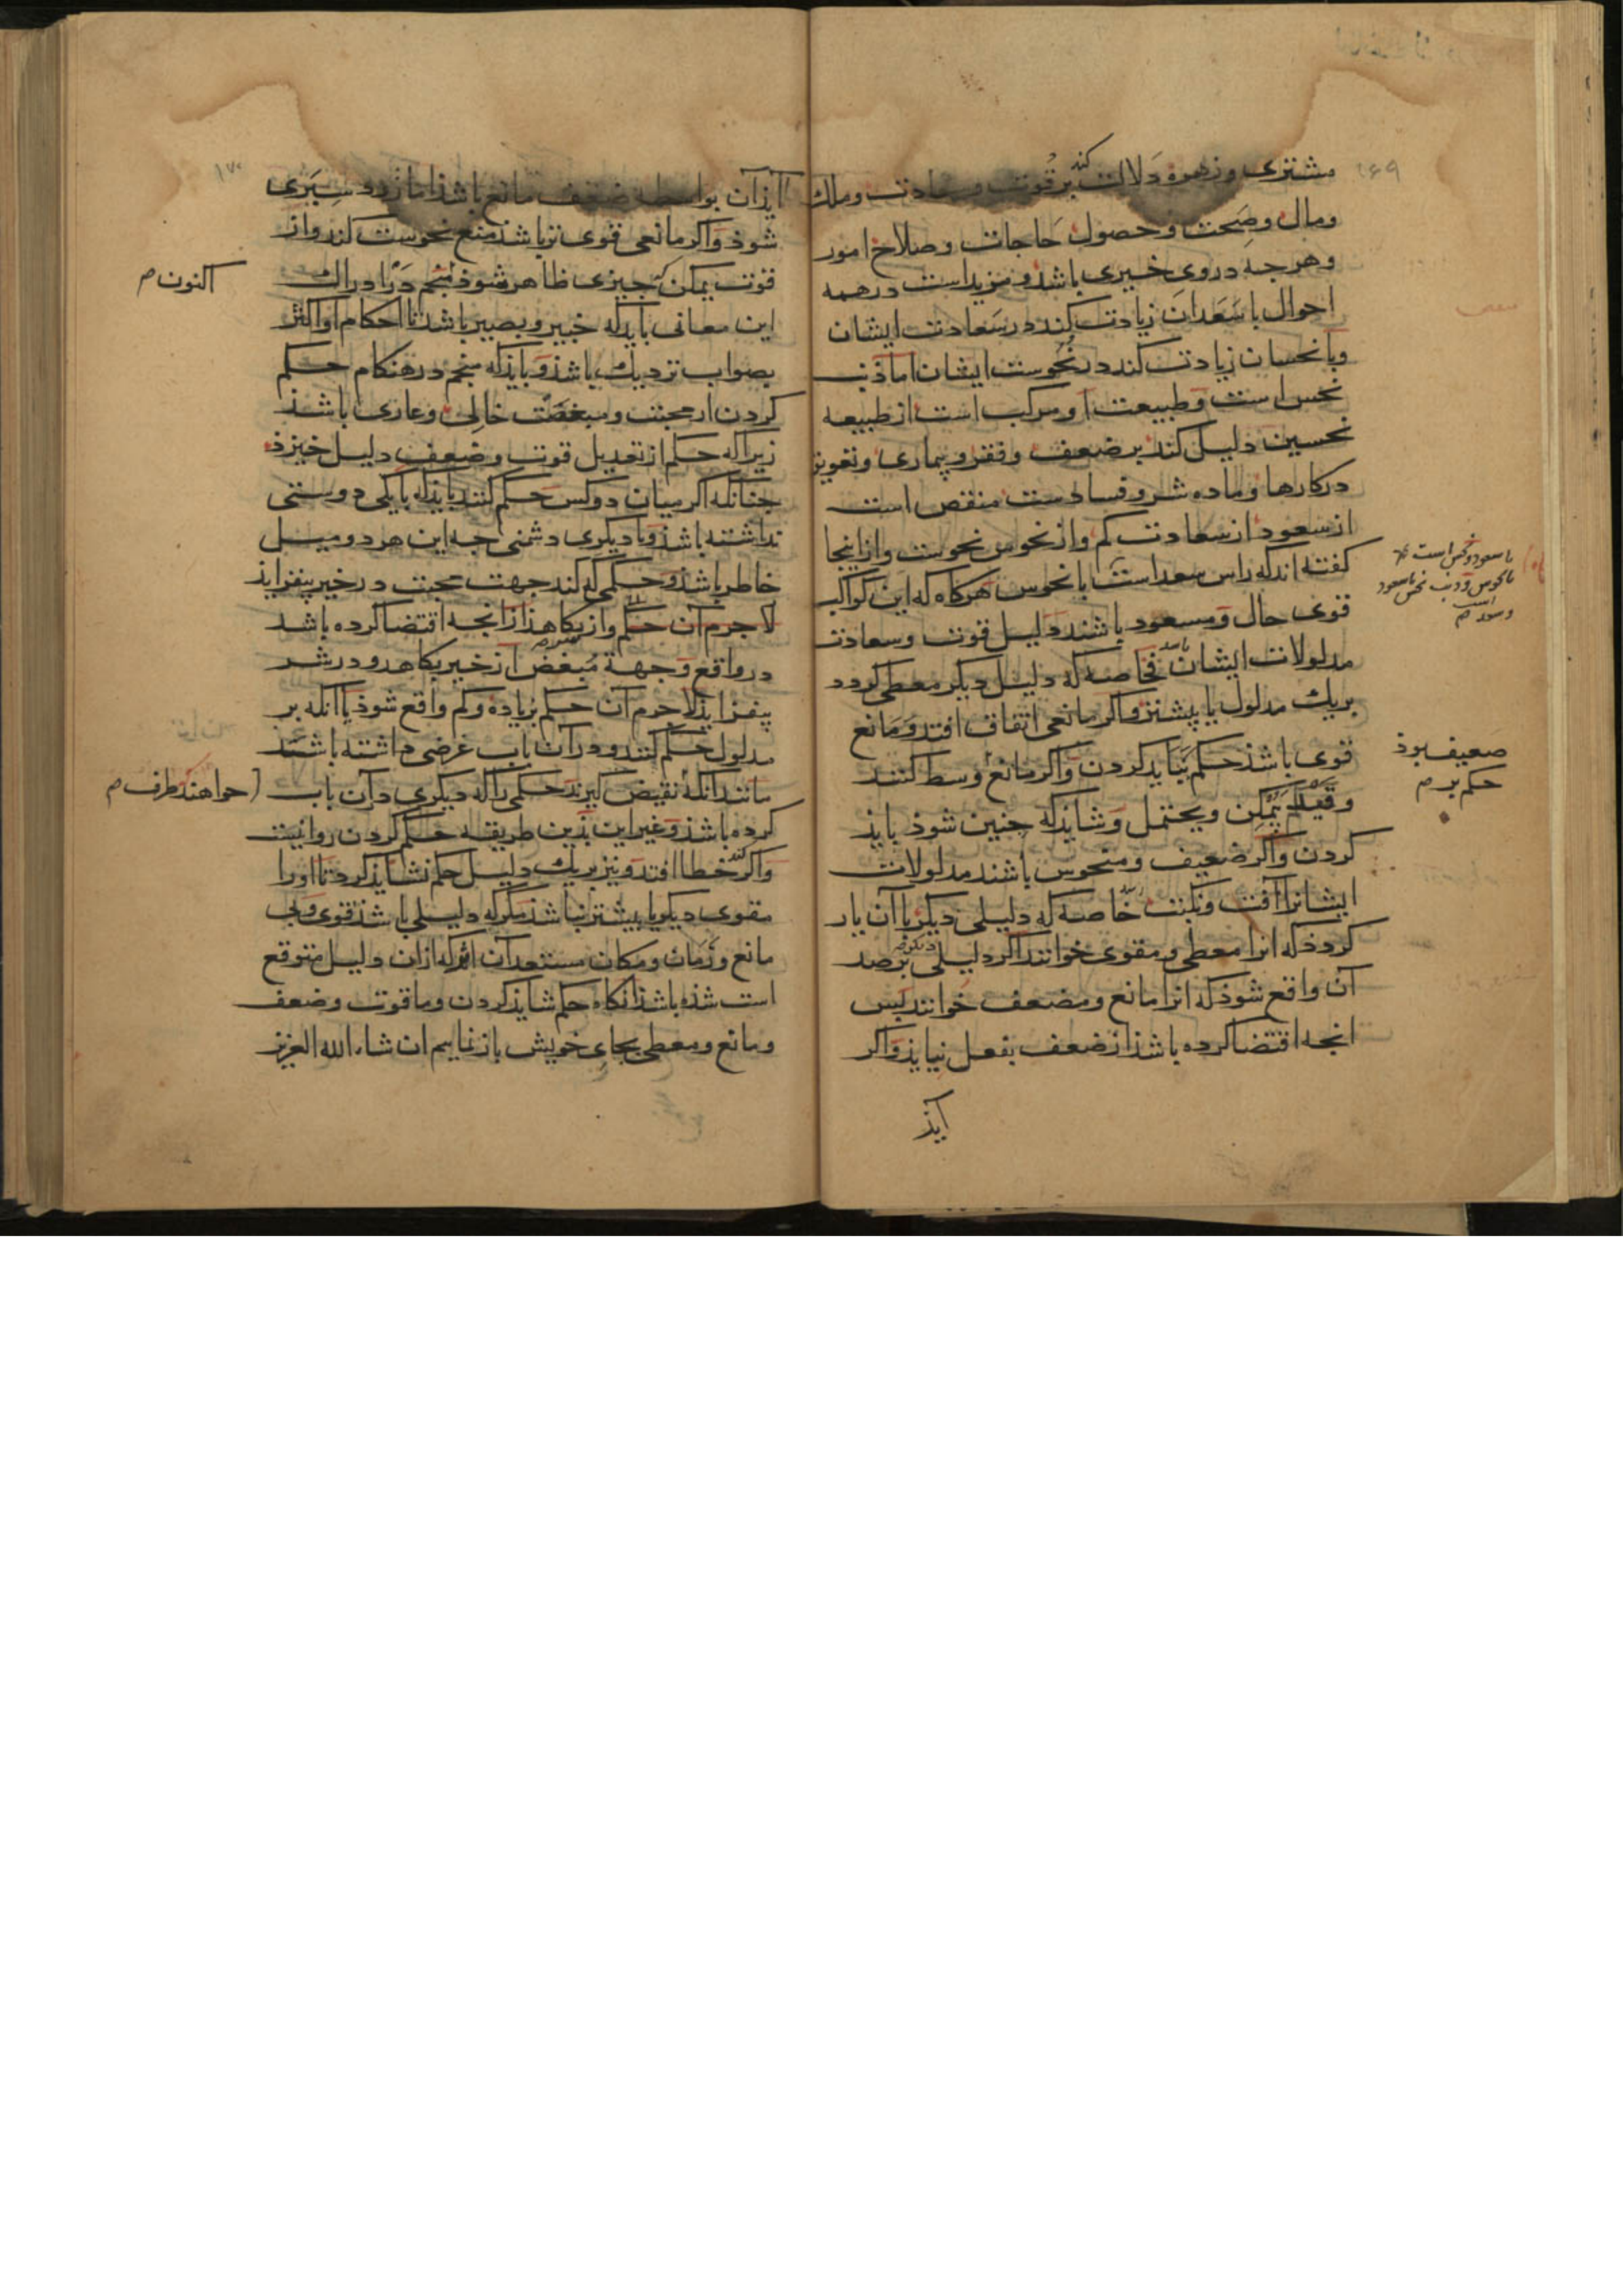 ۱۶۹
مشتری و زهره دلالت کند بر قوت و سعادت و ملک
ومال وصحت وحصول حاجات وصلاح امور
وهرجه دروی خیری باشد و مزید است درهمه
احوال باسعدان زیادت کند درسعادت ایشان
وبانحسان زیادت کند درنحوست ایشان اما ذنب
نحس است وطبیعت او مرکب است از طبیعه
نحسین دلیل کند بر ضعف و فقر و بیماری وتعویق
درکارها وماده شر و فسادست منقص است
از سعود از سعادت کم واز نحوس نحوست وازاینجا
کفته اند که راس سعد است بانحوس هرکاه که این کواکب
قوی حال ومسعود باشند دلیل قوت وسعادت
مدلولات ایشان باشد خاصه که دلیل دیکر معطی کردد
بریک مدلول یا بیشتر واکر مانعی اتفاق افتد ومانع
قوی باشذ حکم نباید کردن واکر مانع وسط کنند
وقید یمکن ویحتمل وشاید که جنین شوذ باید
کردن واکر ضعیف ومنحوس باشند مدلولات
ایشانرا آفت ونکبت رسد خاصه که دلیلی دیکر باآن یار
کردذ که انرا معطی و مقوی خوانند اکر دلیلی دیکر برضد
آن واقع شوذ که انرا مانع ومضعف خوانند پس
انجه اقتضا کرده باشذ ازضعف بفعل نیایذ واکر
آیذ
باسعود ونحس است
بانحوس وذنب نحس باسعود
ضعیف بوذ
حکم بر م
۱۷۰
آیذ آن بواسطه ضعف مانع باشد اما زود سپری
شوذ واکر مانعی قوی تر باشد منع نحوست کند واز
قوت یمکن که جیزی ظاهر شوذ منجم را در ادراک
این معانی باید که خبیر وبصیر باشد تا احکام او اکثر
بصواب نزدیک باشذ وبایذ که منجم درهنکام حکم
کردن از محبت ومبغضت خالی وعاری باشد
زیرا که حکم از تعدیل قوت وضعف دلیل خیزد
جنانکه اکر میان دوکس حکم کنند بایذ که بایکی دوستی
نداشته باشذ وبا دیکری دشمنی جه این هر دو میل
خاطر باشذ وحکمی که کند جهت محبت درخیر بیفزایذ
لاجرم آن حکم وازبکاهذ ازانجه اقتضا کرده باشد
درواقع وجهة مبغض از خیر بکاهد و درشر
بیفزایذ لاجرم آن حکم بزیاده وکم واقع شوذ یا آنکه بر
مدلول حکم کنند و درآن باب غرضی داشته باشند
مانند آنکه نقیض کیرند حکمی را که دیکری درآن باب
کرده باشد وغیر این بذین طریقه حکم کردن روانیست
واکر کند خطا افتد ونیز بریک دلیل حکم نشاید کرد تا اورا
مقوی دیکر یا بیشتر نباشد مکر که دلیلی باشد قوی وبی
مانع وزمان ومکان مستعد آن اثر که ازان دلیل متوقع
است شذه باشذ آنکاه حکم شایذ کردن وماقوت وضعف
ومانع ومعطی بجای خویش باز نماییم ان شاء الله العزیز
اکنون م
خواهند طرف م